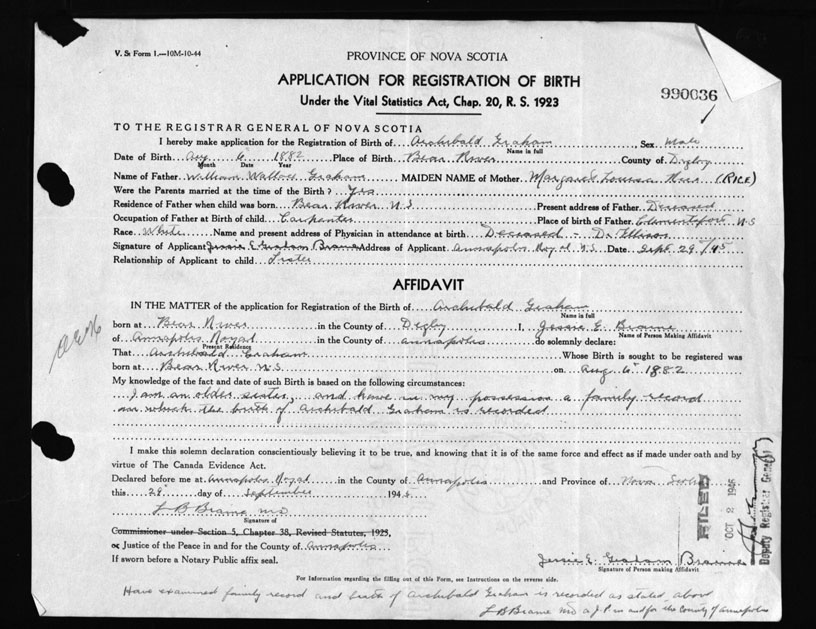 V. St Form 1.—10M-10-44
PROVINCE OF NOVA SCOTIA
APPLICATION FOR REGISTRATION OF BIRTH
Under the Vital Statistics Act, Chap. 20, R. S. 1923
990036
TO THE REGISTRAR GENERAL OF NOVA SCOTIA
I hereby make application for the Registration of Birth of Archibald Graham Sex Male
Name in full
Date of Birth Aug 6" 1882 Place of Birth Bear River County of Digby
Month Date Year
Name of Father William Wallace Graham MAIDEN NAME of Mother Margaret Louisa Rice (RICE)
Were the Parents married at the time of the Birth? Yes
Residence of Father when child was born Bear River N.S Present address of Father Deceased
Occupation of Father at Birth of child Carpenter Place of birth of Father Clementsport N S
Race White Name and present address of Physician in attendance at birth Deceased - Dr Ellison
Signature of Applicant Jessie E Graham Brame Address of Applicant Annapolis Royal N.S. Date Sept. 29"/45
Relationship of Applicant to child Sister
AFFIDAVIT
IN THE MATTER of the application for Registration of the Birth of Archibald Graham
Name in full
born at Bear River in the County of Digby I, Jessie E Brame
Name of Person Making Affidavit
of Annapolis Royal in the County of Annapolis do solemnly declare:
Present Residence
That Archibald Graham Whose Birth is sought to be registered was
born at Bear River N.S on Aug 6" 1882
My knowledge of the fact and date of such Birth is based on the following circumstances:
I am an older sister, and have in my possession a family record
in which the birth of Archibald Graham is recorded
I make this solemn declaration conscientiously believing it to be true, and knowing that it is of the same force and effect as if made under oath and by
virtue of The Canada Evidence Act.
Declared before me at Annapolis Royal in the County of Annapolis and Province of Nova Scotia
this 29" day of September 1945
L B Brame MD
Signature of
Commissioner under Section 5, Chapter 38, Revised Statutes, 1923,
or Justice of the Peace in and for the County of Annapolis
If sworn before a Notary Public affix seal.
Jessie E. Graham Brame
Signature of Person making Affidavit
FILED
OCT 2 1945
Deputy Registrar General
For Information regarding the filling out of this Form, see Instructions on the reverse side.
Have examined family record and birth of Archibald Graham is recorded as stated above
L B Brame MD a J P in and for the County of Annapolis